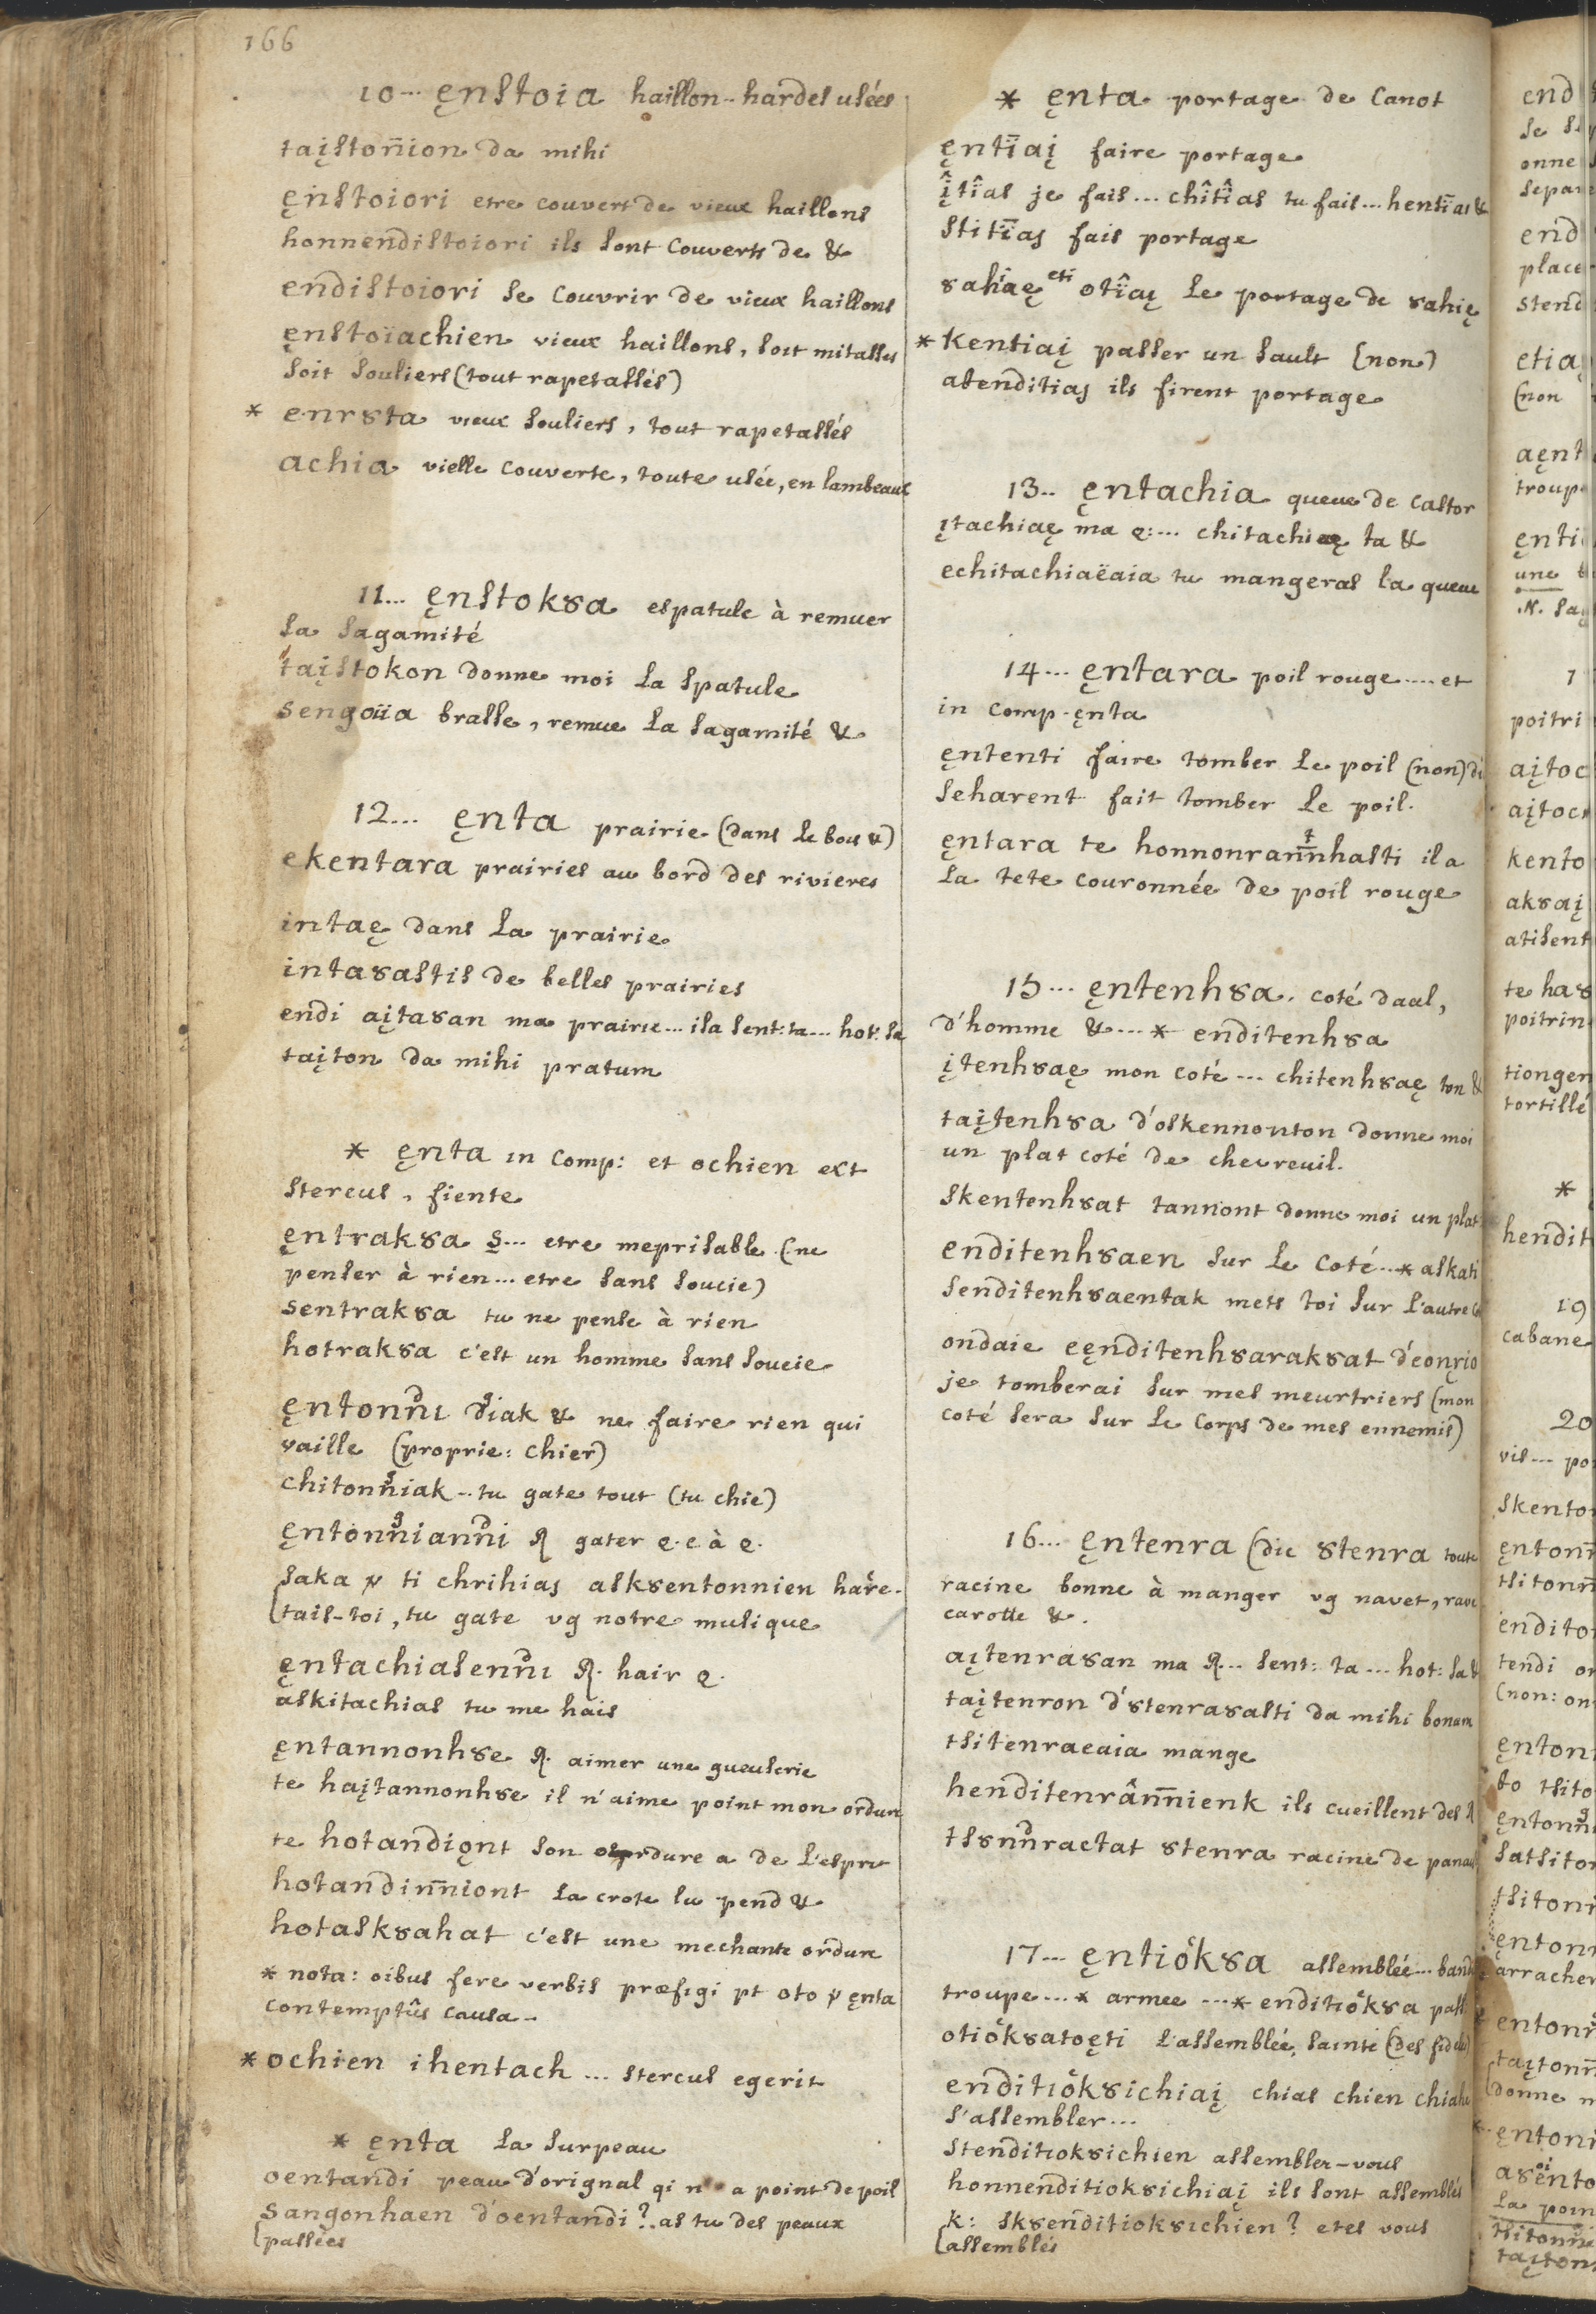 166
10... ęnstoia haillon-hardes usées
taįston̄ion da mihi
ęnstoiori etre couvert de vieux haillons
honnen̄distoiori ils sont Couverts de &
en̄distoiori se Couvrir de vieux haillons
ęnstoïachien vieux haillons, soit mitasses
soit souliers (tout rapetassés)
* enrȣta vieux souliers, tout rapetassés
achia vielle couverte, toute usée, en lambeaux
11... ęnstokȣa espatule à remuer
la sagamité
taįstokon donne moi la spatule
sengoïia brasse, remue la sagamité &
12... ęnta prairie (dans le bois &)
ekentara prairies au bord des rivieres
intaę dans la prairie
intaȣastis de belles prairies
en̄di aįtaȣan ma prairie... isa sent: ta... hot: sa
taįton da mihi pratum
* ęnta in comp: et ochien ext
stercus, fiente
ęntrakȣa s... etre meprisable (ne
penser à rien... etre sans soucie)
sentrakȣa tu ne pense à rien
hotrakȣa c'est un homme sans soucie
ęntonn̄ı diak & ne faire rien qui
vaille (proprie: chier)
chitonn̄iak... tu gate tout (tu chie)
ęntonn̄iann̄i ꝶ gater q.c à q.
saka ti chrihias askȣentonnien hare.
tais-toi, tu gate vg notre musique
ęntachiasenn̄ı ꝶ. hair q.
askitachias tu me hais
ęntannonhȣe ꝶ. aimer une gueuserie
te haįtannonhȣe il n'aime point mon ordure
te hotan̄diǫnt son ordure a de l'esprit
hotan̄din̄n̄iont la crote lu pend &
hotaskȣahat c'est une mechante ordure
* nota: oibus fere verbis præfigi pt oto ęnta
contemptûs causa-
* ochien ihentach... stercus egerit
* ęnta la surpeau
oentan̄di peau d'orignal qi n a point de poil
sangonhaen d'oentan̄di? as tu des peaux
passées
* ęnta portage de Canot
ęntïaį faire portage
įtïas je fais... chitïas tu fais... hentïas &
stitïas fais portage
ȣahiaę eti otïaę le portage de ȣahię
* kentiaį passer un sault (non)
aten̄ditias ils firent portage
13.. ęntachia queue de castor
įtachiaę ma q:... chitachiaę ta &
echitachiaëaia tu mangeras la queue
14... ęntara poil rouge..... et
in comp. ęnta
ęntenti faire tomber le poil (non) di
seharent fait tomber le poil.
ęntara te honnonrann̄hasti il a
la tete couronnée de poil rouge
15... ęntenhȣa. coté daal,
d'homme &... * en̄ditenhȣa
įtenhȣaę mon coté... chitenhȣaę ton &
taįtenhȣa d'oskennonton donne moi
un plat coté de chevreuil.
skentenhȣat tannont donne moi un plat
en̄ditenhȣaen sur le coté... * askati
sen̄ditenhȣaentak mets toi sur l'autre
ondaie eęnditenhȣarakȣat d'eonrio
je tomberai sur mes meurtriers (mon
coté sera sur le corps de mes ennemis)
16... ęntenra (dic ȣtenra toute
racine bonne à manger vg navet, rave
carotte &.
aįtenraȣan ma ꝶ... sent: ta... hot: sa &
taįtenron d'ȣtenraȣasti da mihi bonam
tsitenraeaia mange
hen̄ditenrân̄n̄ienk ils cueillent des ꝶ
tsȣnn̄ractat ȣtenra racine de panais
17... ęntiokȣa assemblée... bande
troupe... * armee... * en̄ditiokȣa
otiokȣatoęti l'assemblée, sainte (des fideles)
en̄ditiokȣichiaį chias chien chiahe
s'assembler...
sten̄ditiokȣichien assembler-vous
honnen̄ditiokȣichiaį ils sont assemblés
k: skȣen̄ditiokȣichien? etes vous
assemblés